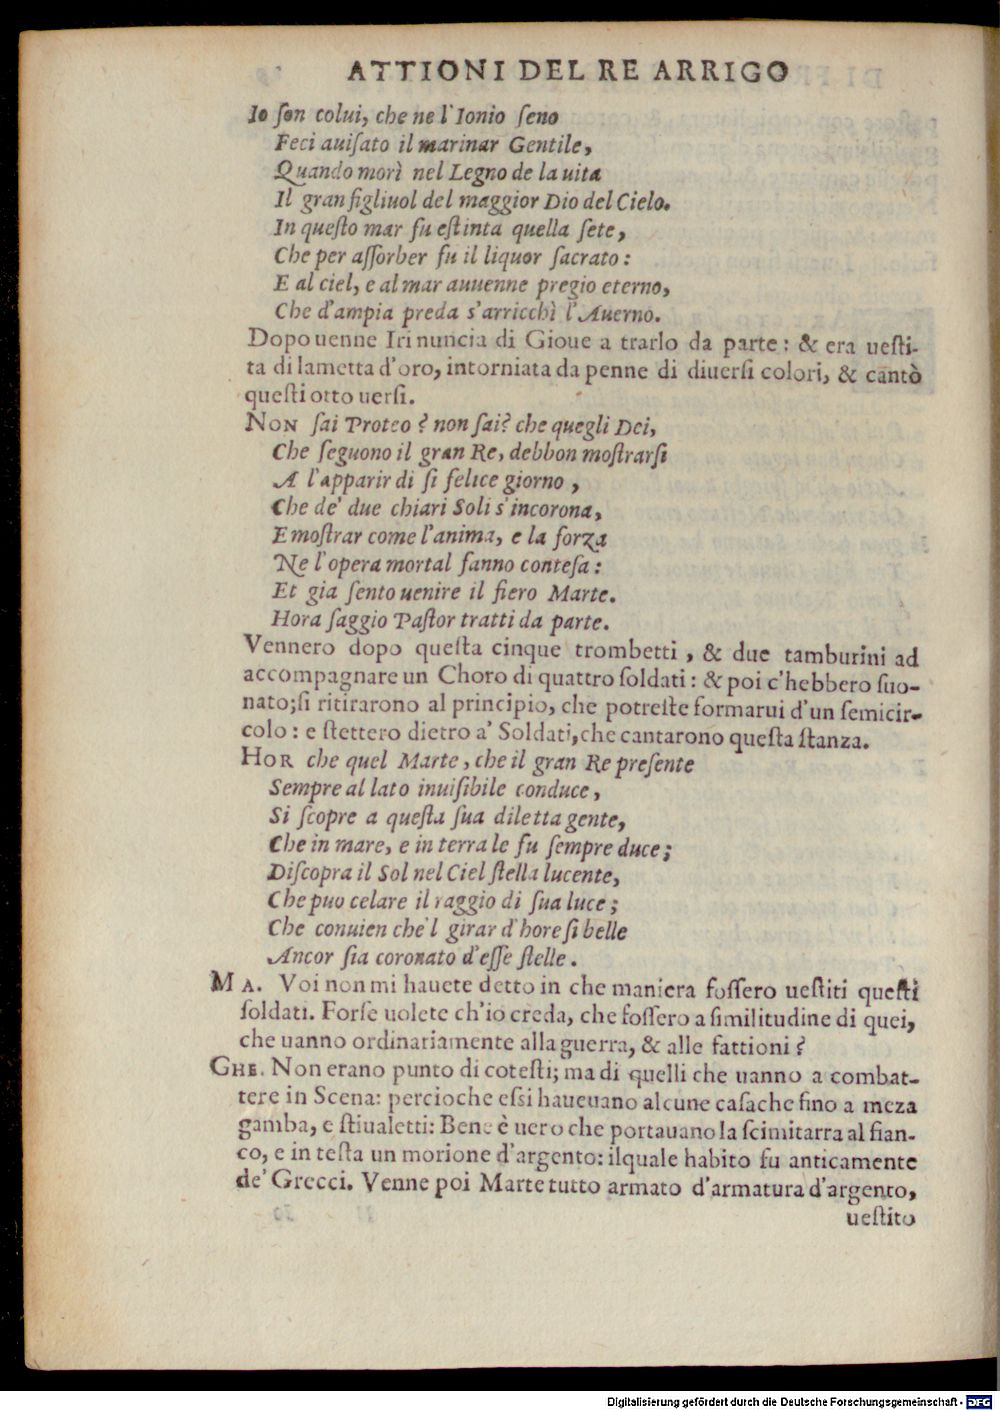 ATTIONI DEL RE ARRIGO
Io son colui, che ne l'Ionio seno
Feci auisato il marinar Gentile,
Quando morì nel Legno de la uita
Il gran figliuol del maggior Dio del Cielo.
In questo mar fu estinta quella sete,
Che per assorber fu il liquor sacrato:
E al ciel, e al mar auuenne pregio eterno,
Che d'ampia preda s'arricchì l'Auerno.
Dopo uenne Iri nuncia di Gioue a trarlo da parte: & era uesti-
ta di lametta d'oro, intorniata da penne di diuersi colori, & cantò
questi otto uersi.
NON sai Proteo? non sai? che quegli Dei,
Che seguono il gran Re, debbon mostrarsi
A l'apparir di si felice giorno,
Che de' due chiari Soli s'incorona,
E mostrar come l'anima, e la forza
Ne l'opera mortal fanno contesa:
Et gia sento uenire il fiero Marte.
Hora saggio Pastor tratti da parte.
Vennero dopo questa cinque trombetti, & due tamburini ad
accompagnare un Choro di quattro soldati: & poi c'hebbero suo-
nato; si ritirarono al principio, che potreste formarui d'un semicir-
colo: e stettero dietro a' Soldati, che cantarono questa stanza.
HOR che quel Marte, che il gran Re presente
Sempre al lato inuisibile conduce,
Si scopre a questa sua diletta gente,
Che in mare, e in terra le fu sempre duce;
Discopra il Sol nel Ciel stella lucente,
Che puo celare il raggio di sua luce;
Che conuien che'l girar d'hore si belle
Ancor sia coronato d'esse stelle.
MA. Voi non mi hauete detto in che maniera fossero uestiti questi
soldati. Forse uolete ch'io creda, che fossero a similitudine di quei,
che uanno ordinariamente alla guerra, & alle fattioni?
GHE. Non erano punto di cotesti; ma di quelli che uanno a combat-
tere in Scena: percioche essi haueuano alcune casache fino a meza
gamba, e stiualetti: Bene è uero che portauano la scimitarra al fian-
co, e in testa un morione d'argento: ilquale habito fu anticamente
de' Grecci. Venne poi Marte tutto armato d'armatura d'argento,
uestito
Digitalisierung gefördert durch die Deutsche Forschungsgemeinschaft - DFG